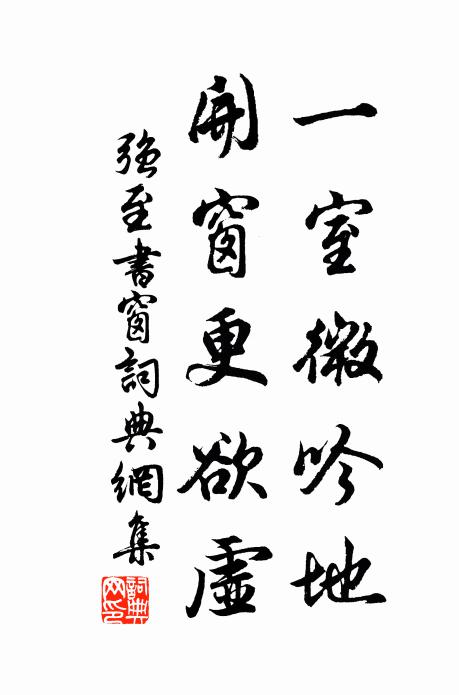 一室微吟地
開窗更欲虛
強至書窗詞典網集
詞典網印